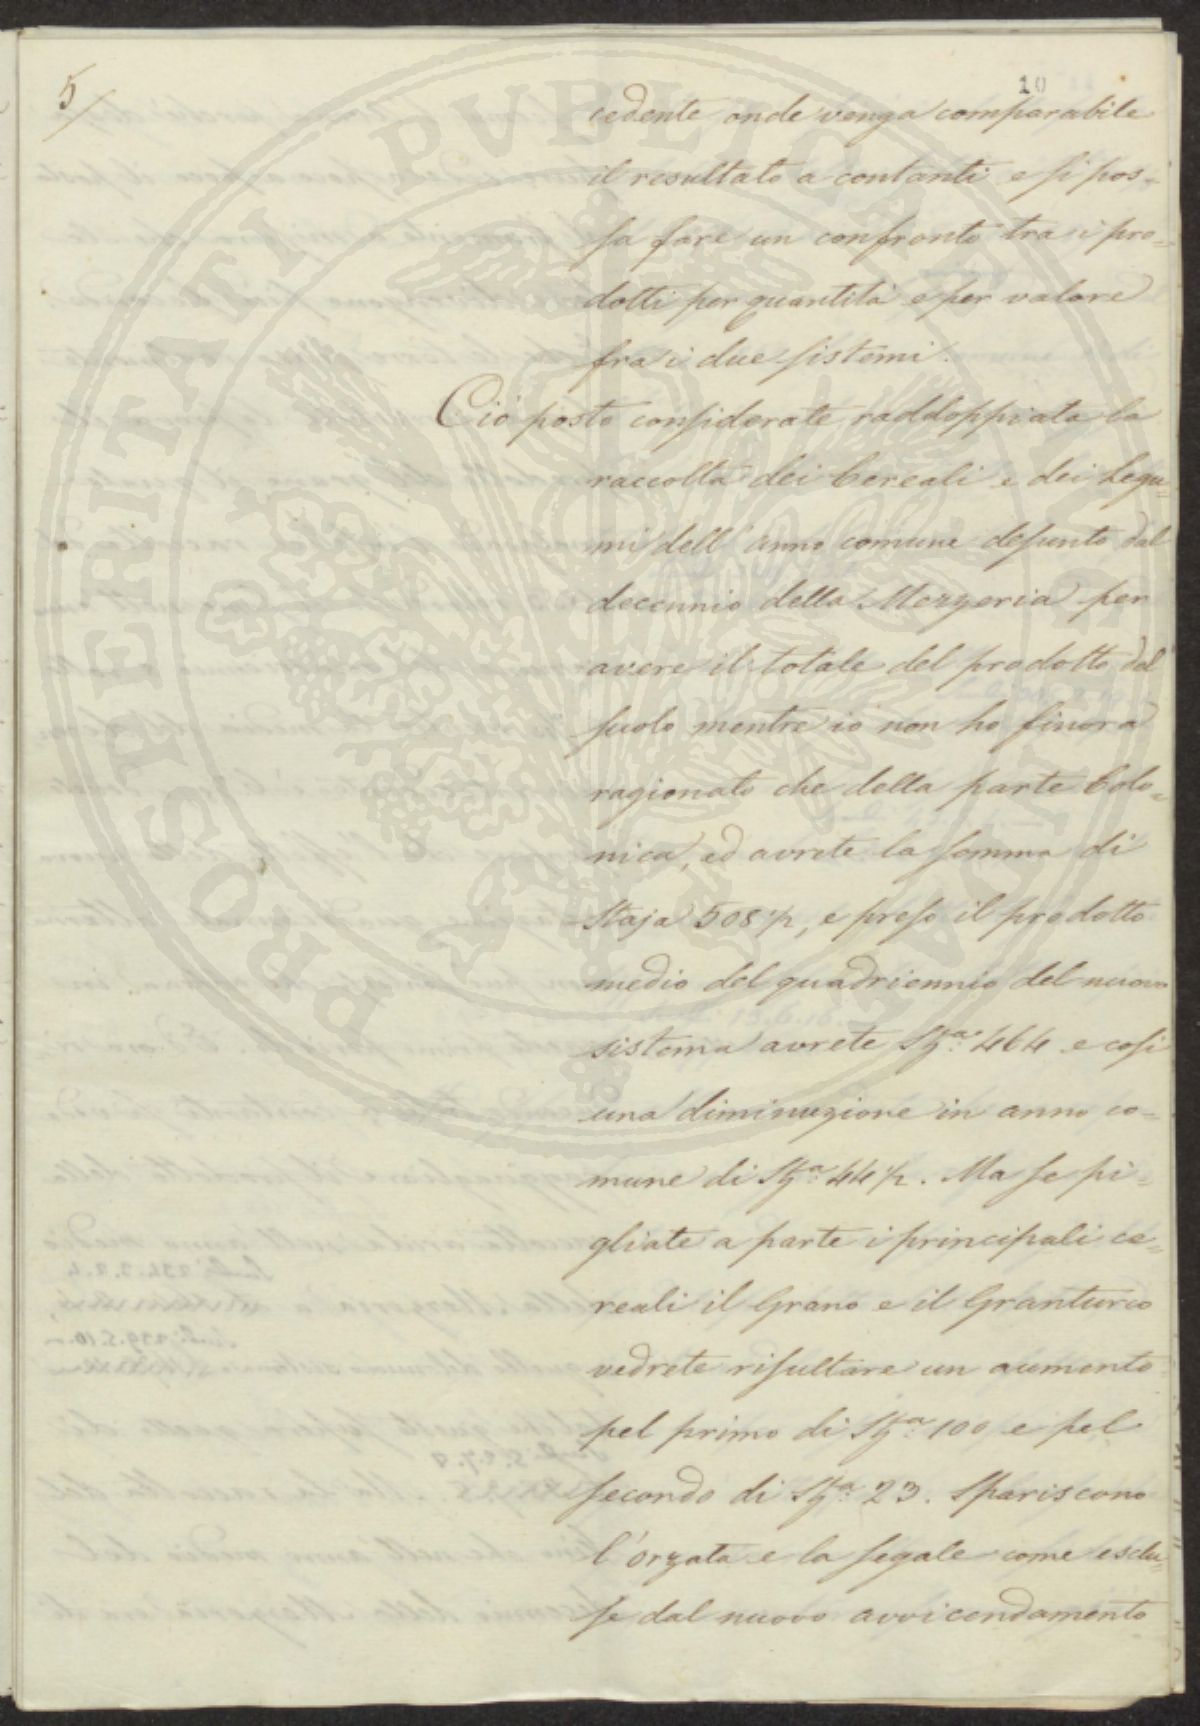 5/
10
cedente onde venga comparabile
il resultato a contanti e si pos-
sa fare un confronto tra i pro=
dotti per quantità e per valore
fra i due sistemi.
Ciò posto considerate raddoppiata la
raccolta dei Cereali e dei Legu=
mi dell'anno comune desunto dal
decennio della Mezzeria per
avere il totale del prodotto del
suolo mentre io non ho finora
ragionato che della parte Colo=
nica, ed avrete la somma di
Staja 508½, e preso il prodotto
medio del quadriennio del nuovo
sistema avrete Stja 464 e cosi
una diminuzione in anno co=
mune di Stja 44½. Ma se pi=
gliate a parte i principali ce=
reali il Grano e il Granturco
vedrete risultare un aumento
pel primo di Stja 100 e pel
secondo di Stja 23. Spariscono
l'orzata e la segale come esclu=
se dal nuovo avvicendamento
PROSPERITATI PVBLICAE AVGENDAE